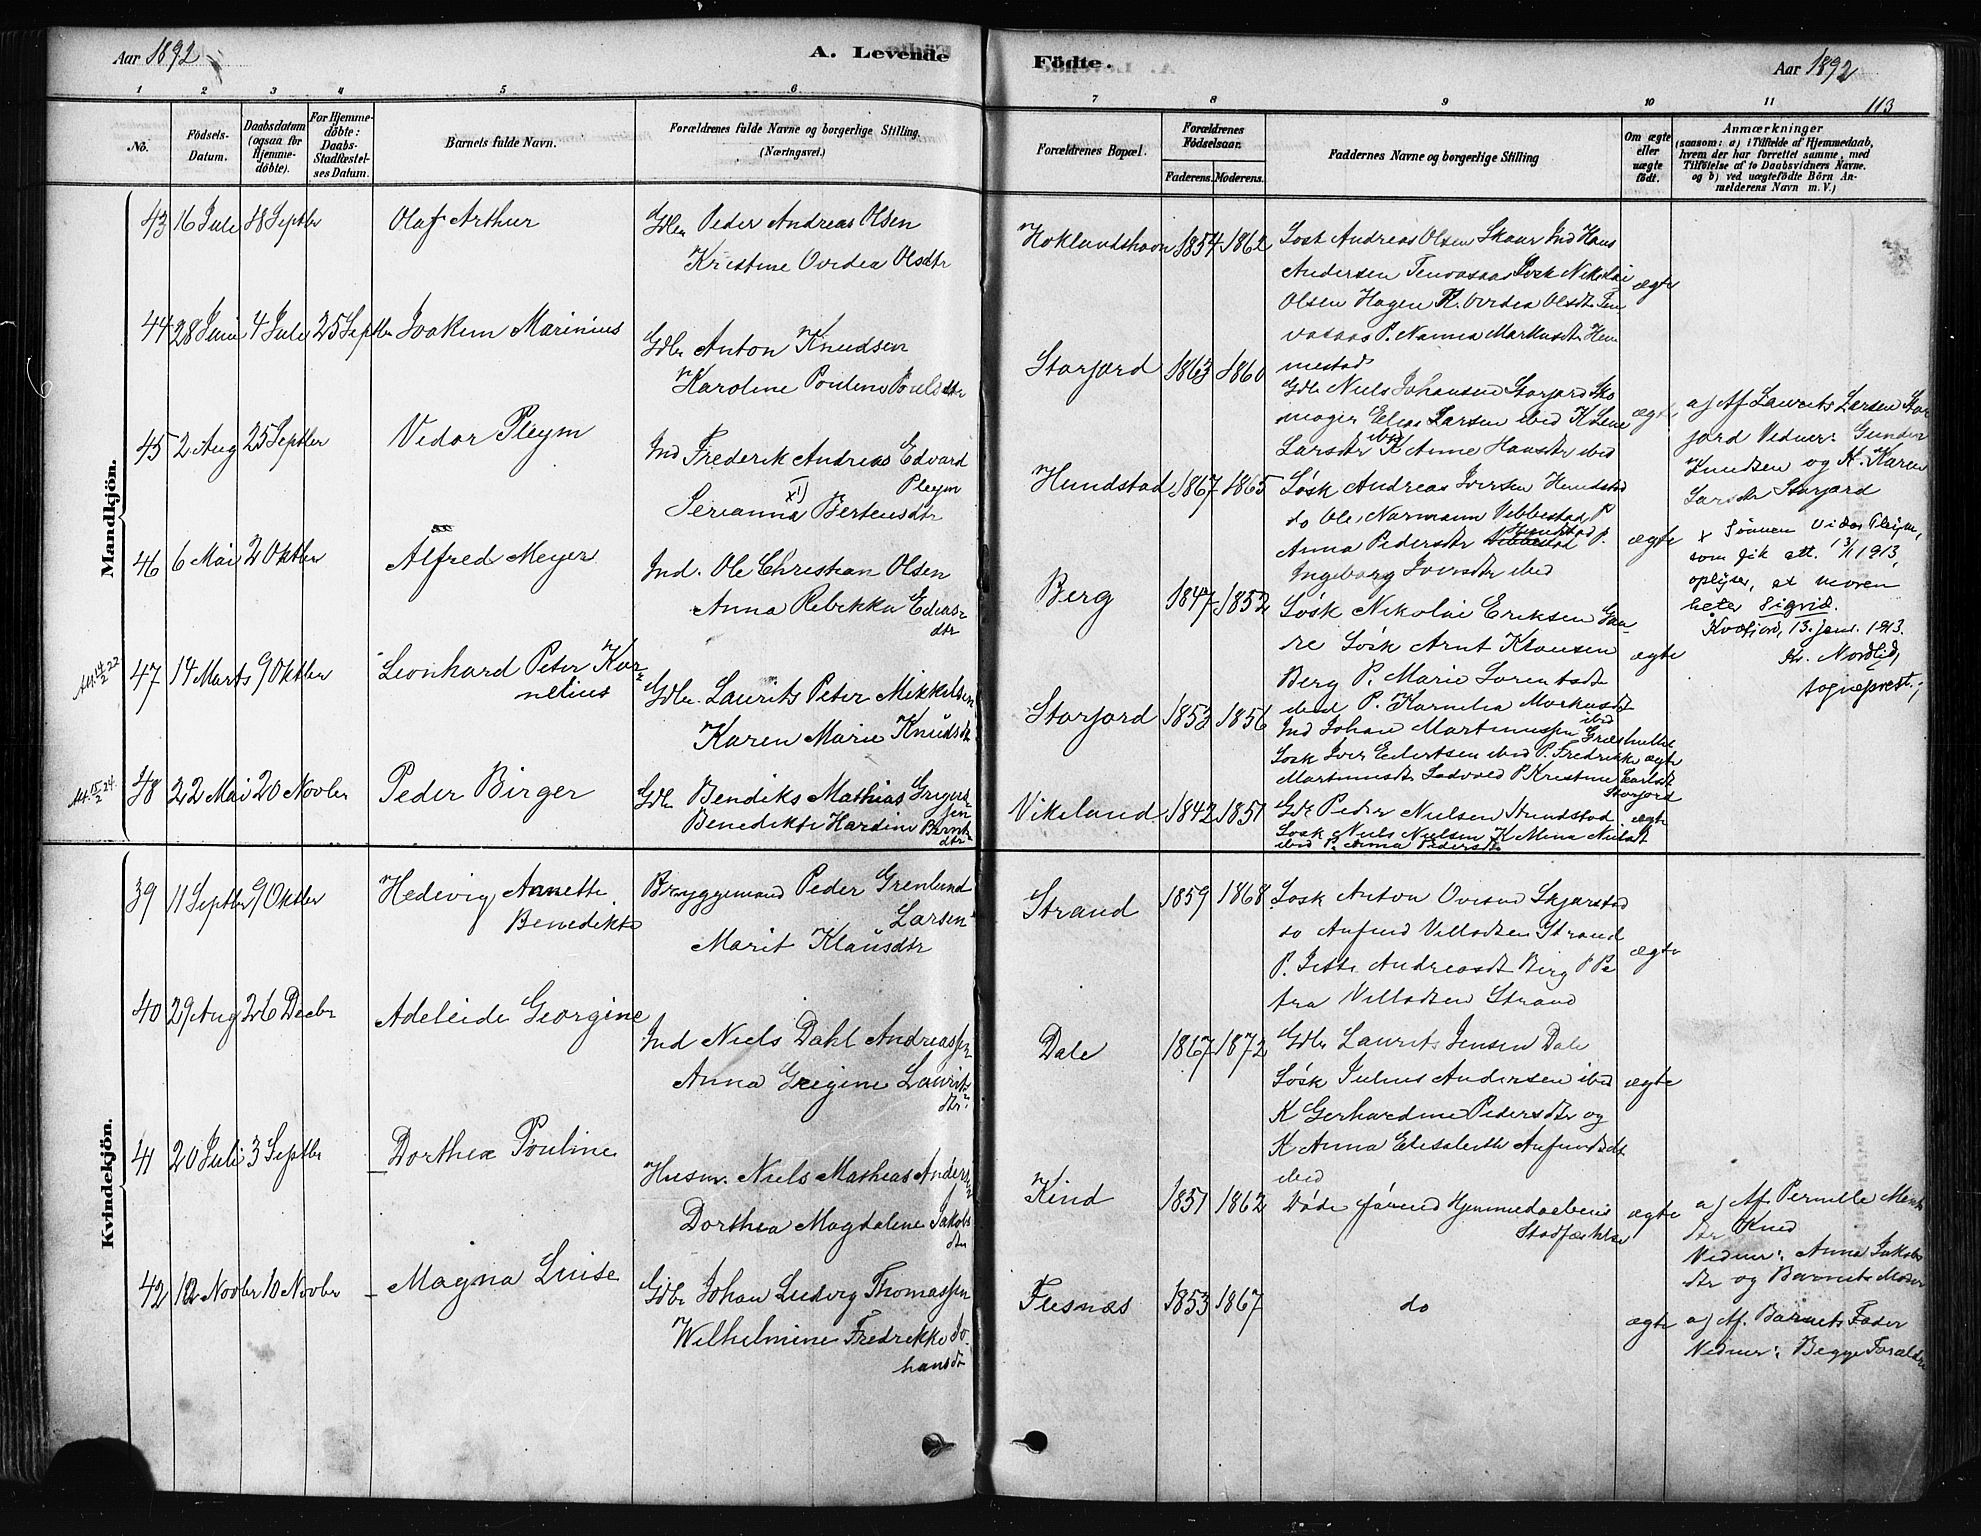 Aar 1892
A. Levende
Födte.
Aar 1892
113
1 2 3 4 5 6 7 8 9 10 11
No.
Födsels-
Datum.
Daabsdatum
(ogsaa for
Hjemme-
döbte).
For Hjemme-
döbte:
Daabs-
Stadfæstel-
ses Datum.
Barnets fulde Navn.
Forældrenes fulde Navne og borgerlige Stilling.
(Næringsvei.)
Forældrenes Bopæl.
Forældrenes
Födselsaar.
Faderens. Moderens.
Faddernes Navne og borgerlige Stilling
Om ægte
eller
uægte
födt.
Anmærkninger
(saasom: a) i Tilfælde af Hjemmedaab,
hvem der har forrettet samme, med
Tilföielse af to Daabsvidners Navne.
og b) ved uægtefödte Börn An-
melderens Navn m. V.)
Mandkjön.
43 16 Juli 18 Septbr
Olaf Arthur
Gdbr Peder Andreas Olsen
Kristine Ovidea Olsdtr
1854 1862
Søsk Andreas Olsen Skaar Ind Hans
Andersen Søsk Nikolai
Olsen Hagen K. Ovidea Olsdtr
P. Nanna Markusdtr Hem
mestad
ægte
44 28 Juni 4 Juli 25 Septbr
Joakim Marinius
Gdbr Anton Knudsen
Karoline Pouline Poulsdtr
Storjord 1863 1860
Gdbr Niels Johansen Storjord Sko
mager Elias Larsen ibid K Lene
Larsdtr ibid K Anne Hansdtr ibid
ægte
a) Af Laurits Larsen Stor
jord Vidner: Gunder
Knudsen og K. Karen
Larsdtr Storjord
45 2 Aug 25 Septbr
Vidar Pleym
Ind Frederik Andreas Edvard
Pleym
x1)
Serianna Berteusdtr
Hundstad 1867 1865
Søsk Andreas Iversen Hundstad
do Ole Normann Vebbestad P
Anna Pedersdtr Hundstad P.
Ingeborg Iversdtr ibid
ægte
x Sønnen Vidar Pleym,
som fik att. 13/1 1913,
oplyser, at moren
heter Sigrid.
Kvæfjord, 13. jan. 1913.
Kr. Nordlid,
sogneprest.
46 6 Mai 2 Oktbr
Alfred Meyer
Ind. Ole Christian Olsen
Anna Rebekka Edias-
dtr
Berg 1847 1852
Søsk Nikolai Eriksen Gaa-
re Søsk Arnt Klausen
Berg P. Marie Sorentsdtr
ibid P. Kornelia Markusdtr
ibid
ægte
Att. 14/2 22
47 14 Marts 9 Oktbr
Leonhard Peter Kor-
nelius
Gdbr. Laurits Peter Mikkelsen
Karen Marie Knudsdtr
Storjord 1853 1856
Ind Johan Martinussen Græsholtet
Søsk Iver Eilertsen ibid P. Fredrikke
Martinusdtr P Kristine Carlsdtr
Storjord
ægte
Att. 15/2 24.
48 22 Mai 20 Novbr
Peder Birger
Gdbr Bendiks Mathias Grigus-
sen
Benedikte Hardine Bernt-
dtr
Vikeland 1842 1851
Gdbr Peder Nielsen Hundstad
Søsk Niels Nielsen K Mina Nielsdtr
ibid P. Anna Pedersdtr
ægte
Kvindekjön.
39 11 Septbr 9 Oktbr
Hedevig Annette
Benedikte
Bryggemand Peder Grenlund
Larsen
Marit Klausdtr
Strand 1859 1868
Søsk Anton Ovesen Skjærstad
do Anfind Villadsen Strand
P. Jette Andreasdtr Berg P Pe
tra Villadsen Strand
ægte
40 29 Aug 26 Decbr
Adeleide Georgine
Ind Niels Dahl Andreassen
Anna Gregine Laurits-
dtr.
Dale 1867 1872
Gdbr Laurits Jensen Dale
Søsk Julius Andersen ibid
K Gerhardine Pedersdtr og
K Anna Elisabeth Anfindsdtr
ibid
ægte
41 20 Juli 3 Septbr –
Dorthea Pouline
Husm. Niels Mathias Anders-
Dorthea Magdalene Jakobs
dtr
Kind 1851 1862
Døde førend Hjemmedaabens
Stadfæstelse
ægte
a) Af Pernille
dtr Kind
Vidner: Anna Jakobs
dtr og Barnets Moder
42 10 Novbr 10 Novbr –
Magna Luise
Gdbr Johan Ludvig Thomassen
Wilhelmine Fredrikke Jo-
hansdtr
Flesnæs 1853 1867
do
ægte
a) Af. Barnets Fader
Vidner: Begge Forældre